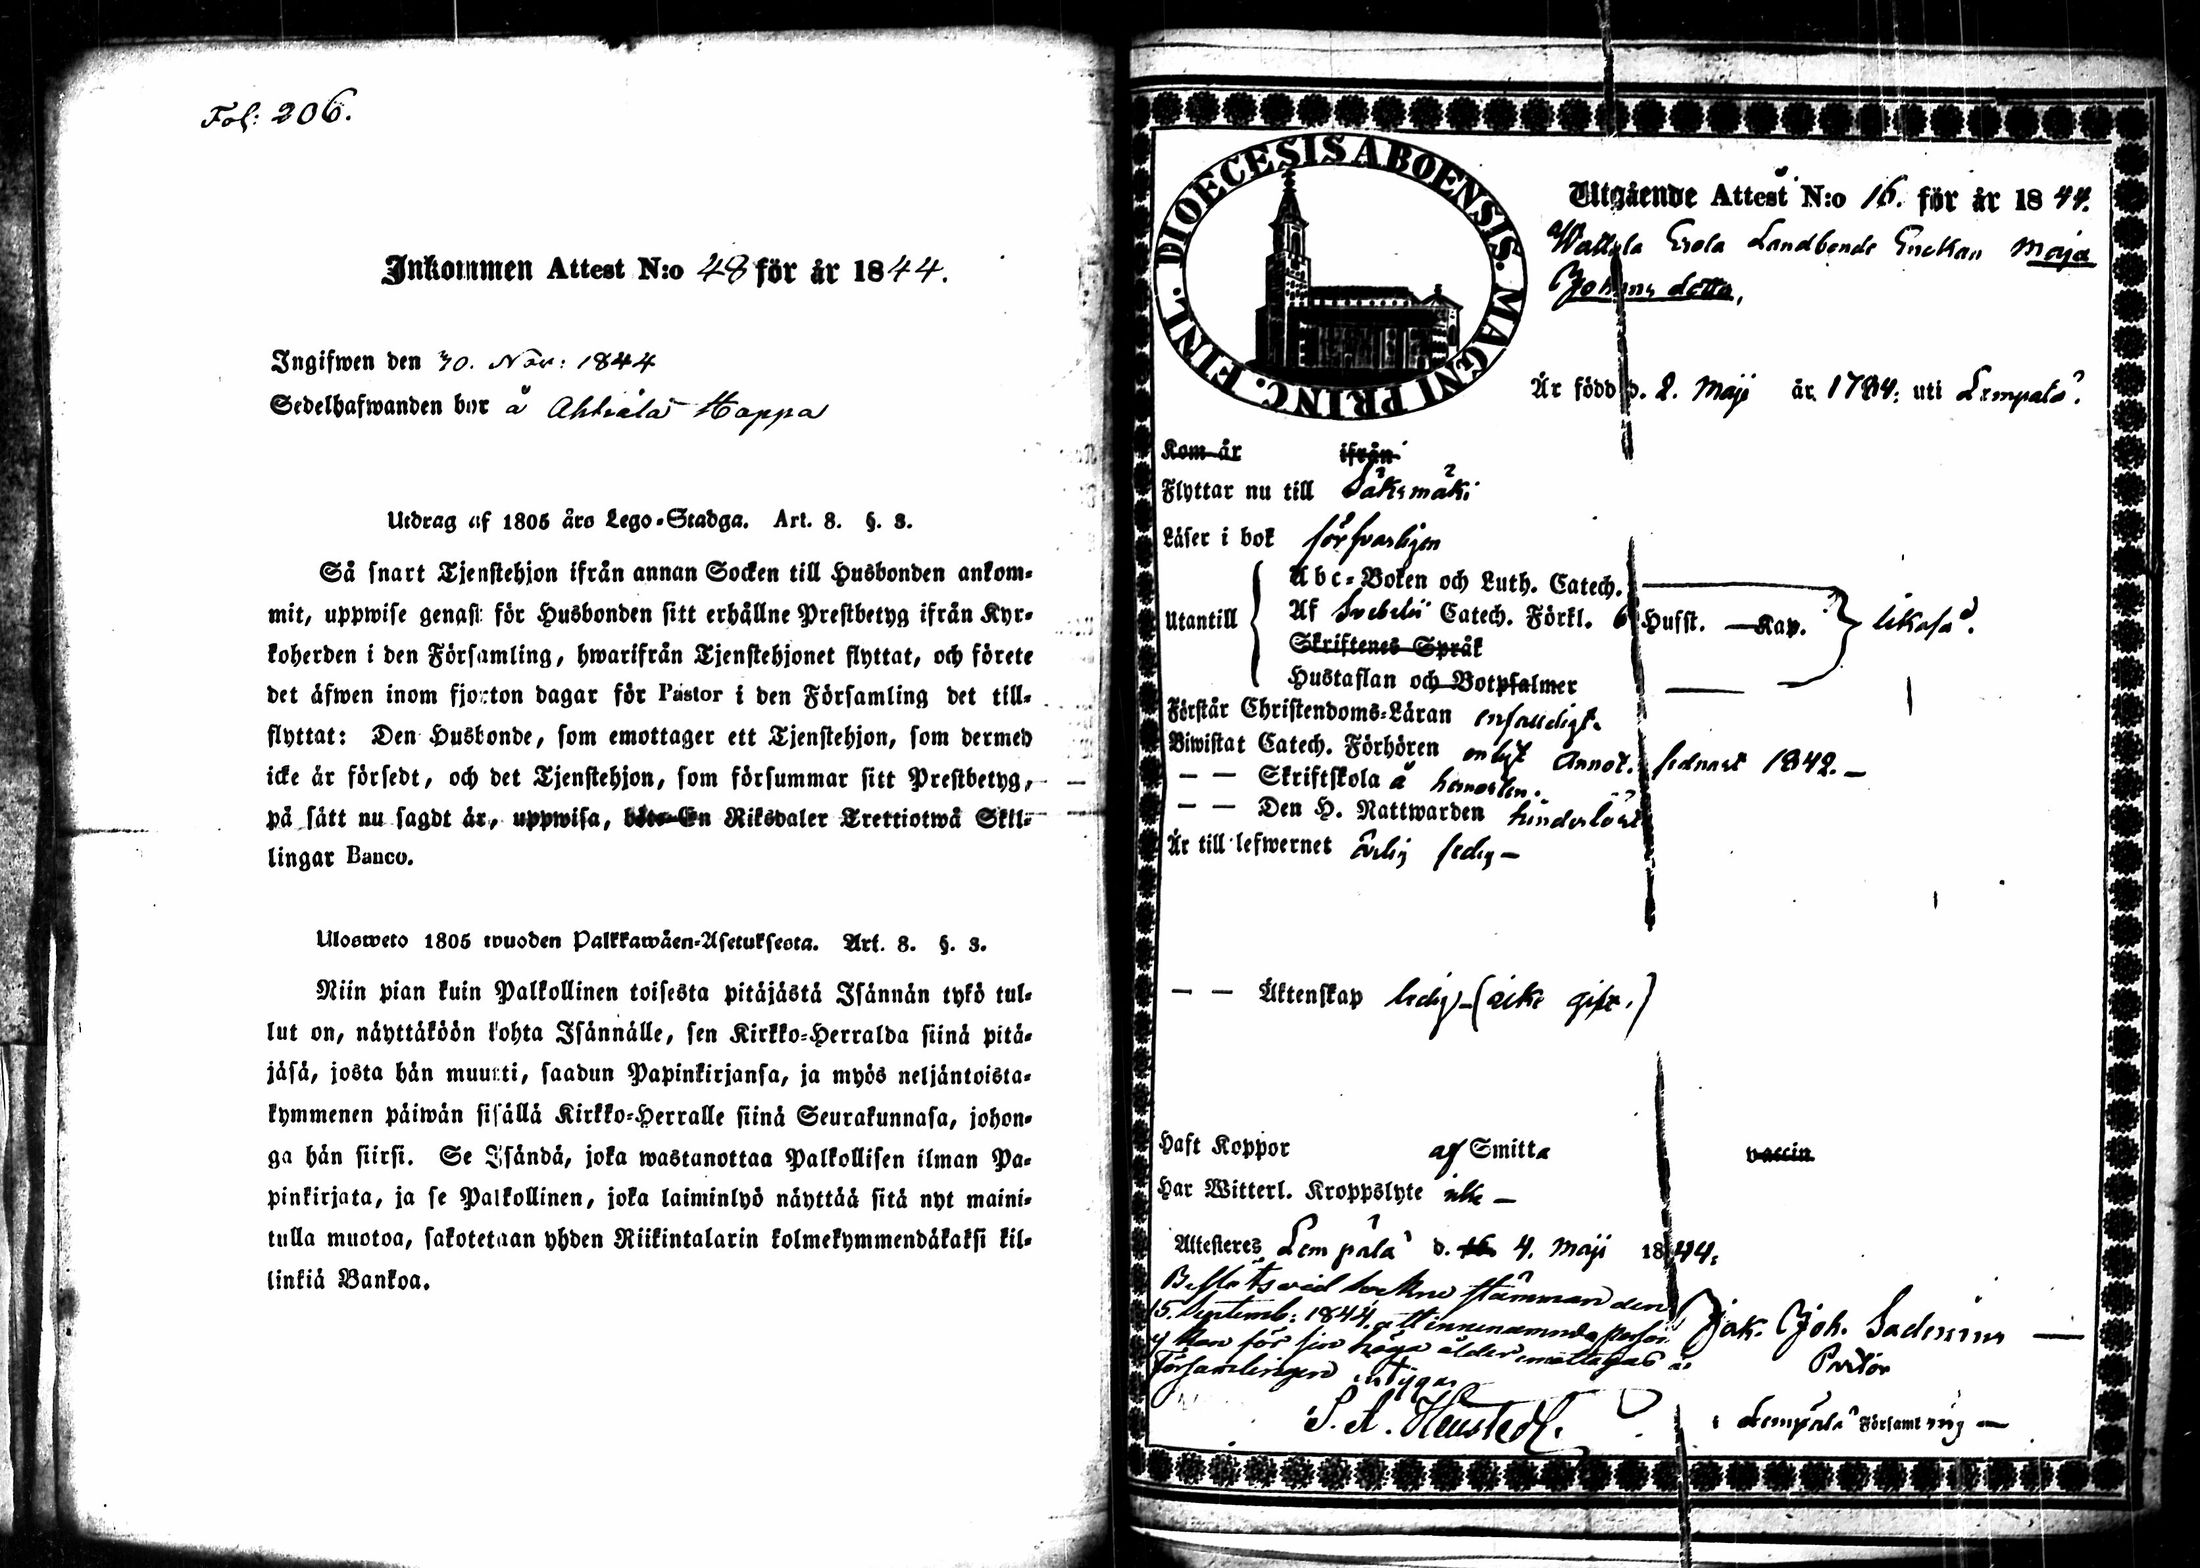 Fol: 206.
Inkommen Attest N:o 48 för år 1844.
Ingifwen den 30. Nov: 1844
Sedelhafwanden bor å Ahtiala Hoppa
Utdrag af 1805 års Lego-Stadga. Art. 8. §. 3.
Så snart Tjenstehjon ifrån annan Socken till Husbonden ankom-
mit, uppwise genast för Husbonden sitt erhållne Prestbetyg ifrån Kyr-
koherden i den Församling, hwarifrån Tjenstehjonet flyttat, och förete
det äfwen inom fjorton dagar för Pastor i den Församling det till-
flyttat: Den Husbonde, som emottager ett Tjenstehjon, som dermed
icke är försedt, och det Tjenstehjon, som försummar sitt Prestbetyg,
på sätt nu sagdt är, uppwisa, böte En Riksdaler Trettiotwå Skil-
lingar Banco.
Ulosweto 1805 wuoden Palkkawäen-Asetuksesta. Art. 8. §. 3.
Niin pian kuin Palkollinen toisesta pitäjästä Isännän tykö tul-
lut on, näyttäköön kohta Isännälle, sen Kirkko-Herralda siinä pitä-
jäsä, josta hän muutti, saadun Papinkirjansa, ja myös neljäntoista-
kymmenen päiwän sisällä Kirkko-Herralle siinä Seurakunnasa, johon-
ga hän siirsi. Se Isändä, joka wastanottaa Palkollisen ilman Pa-
pinkirjata, ja se Palkollinen, joka laiminlyö näyttää sitä nyt maini-
tulla muotoa, sakotetaan yhden Riikintalarin kolmekymmendäkaksi kil-
linkiä Bankoa.
DIOECESIS ABOENSIS. MAGNI PRINC. FINL.
Utgående Attest N:o 16. för år 1844.
Landbonde Enckan Maja
Johans dotter,
Är född d. 2. Maji år 1784: uti Lempälä.
Kom år ifrån
Flyttar nu till Säksmäki
Läser i bok försvarligen
Utantill
Abc-Boken och Luth. Catech.
Af Svebelii Catech. Förkl. 6 Hufst. Kap. likaså.
Skriftenes Språk
Hustaflan och Botpsalmer
Förstår Christendoms-Läran enfaldigt.
Biwistat Catech. Förhören enligt Annot. sednast 1842.
— — Skriftskola å hemorten.
— — Den H. Nattwarden hinderlöst
Är till lefwernet ärlig ledig
— — Äktenskap ledig (icke gift.)
Haft Koppor af Smitta vaccin
Har Witterl. Kroppslyte icke
Attesteres Lempälä d. 4. Maji 1844:
Bestäts vid sockne stämman den
15. Septemb: 1844 att innenämnde person
ej kan för sin höga ålder emottagas i
Församlingen intygar
Jak. Joh. Sadenius
Pastor
i Lempälä Församling